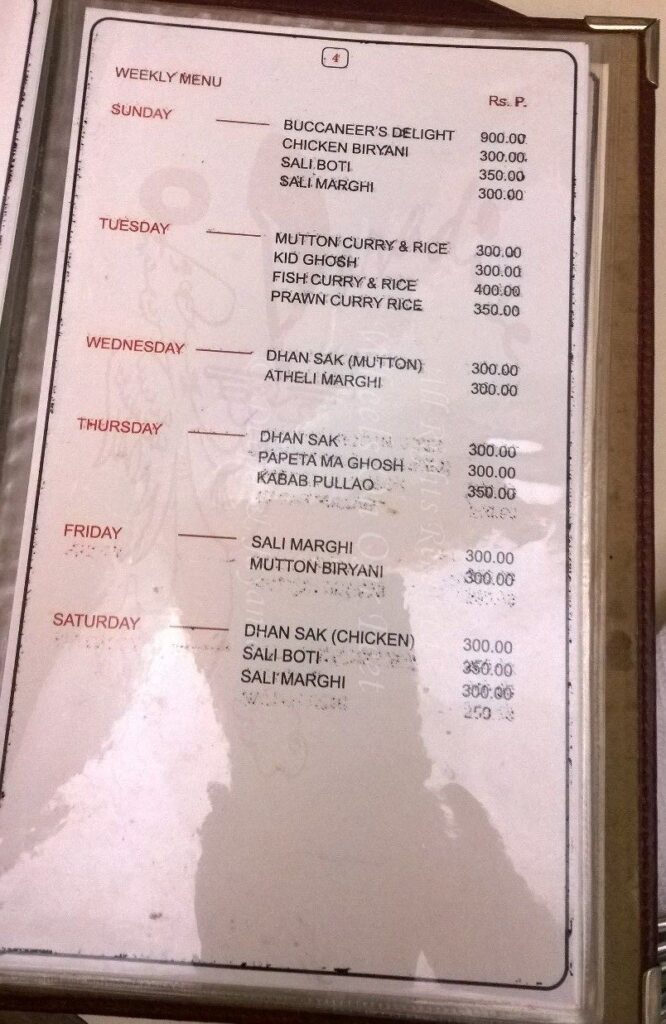 4
WEEKLY MENU Rs. P.
SUNDAY BUCCANEER'S DELIGHT 900.00
CHICKEN BIRYANI 300.00
SALI BOTI 350.00
SALI MARGHI 300.00
TUESDAY MUTTON CURRY & RICE 300.00
KID GHOSH 300.00
FISH CURRY & RICE 400.00
PRAWN CURRY RICE 350.00
WEDNESDAY DHAN SAK (MUTTON) 300.00
ATHELI MARGHI 300.00
THURSDAY DHAN SAK 300.00
PAPETA MA GHOSH 300.00
KABAB PULLAO 350.00
FRIDAY SALI MARGHI 300.00
MUTTON BIRYANI 300.00
SATURDAY DHAN SAK (CHICKEN) 300.00
SALI BOTI 350.00
SALI MARGHI 300.00